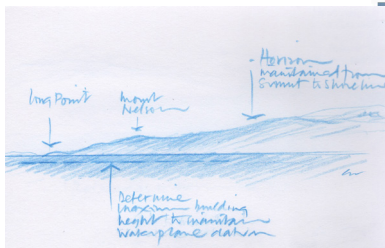 Long Point
Mount
Nelson
Horizon
maintained from
summit to shoreline
Determine
maximum building
height to maintain
waterplane datum